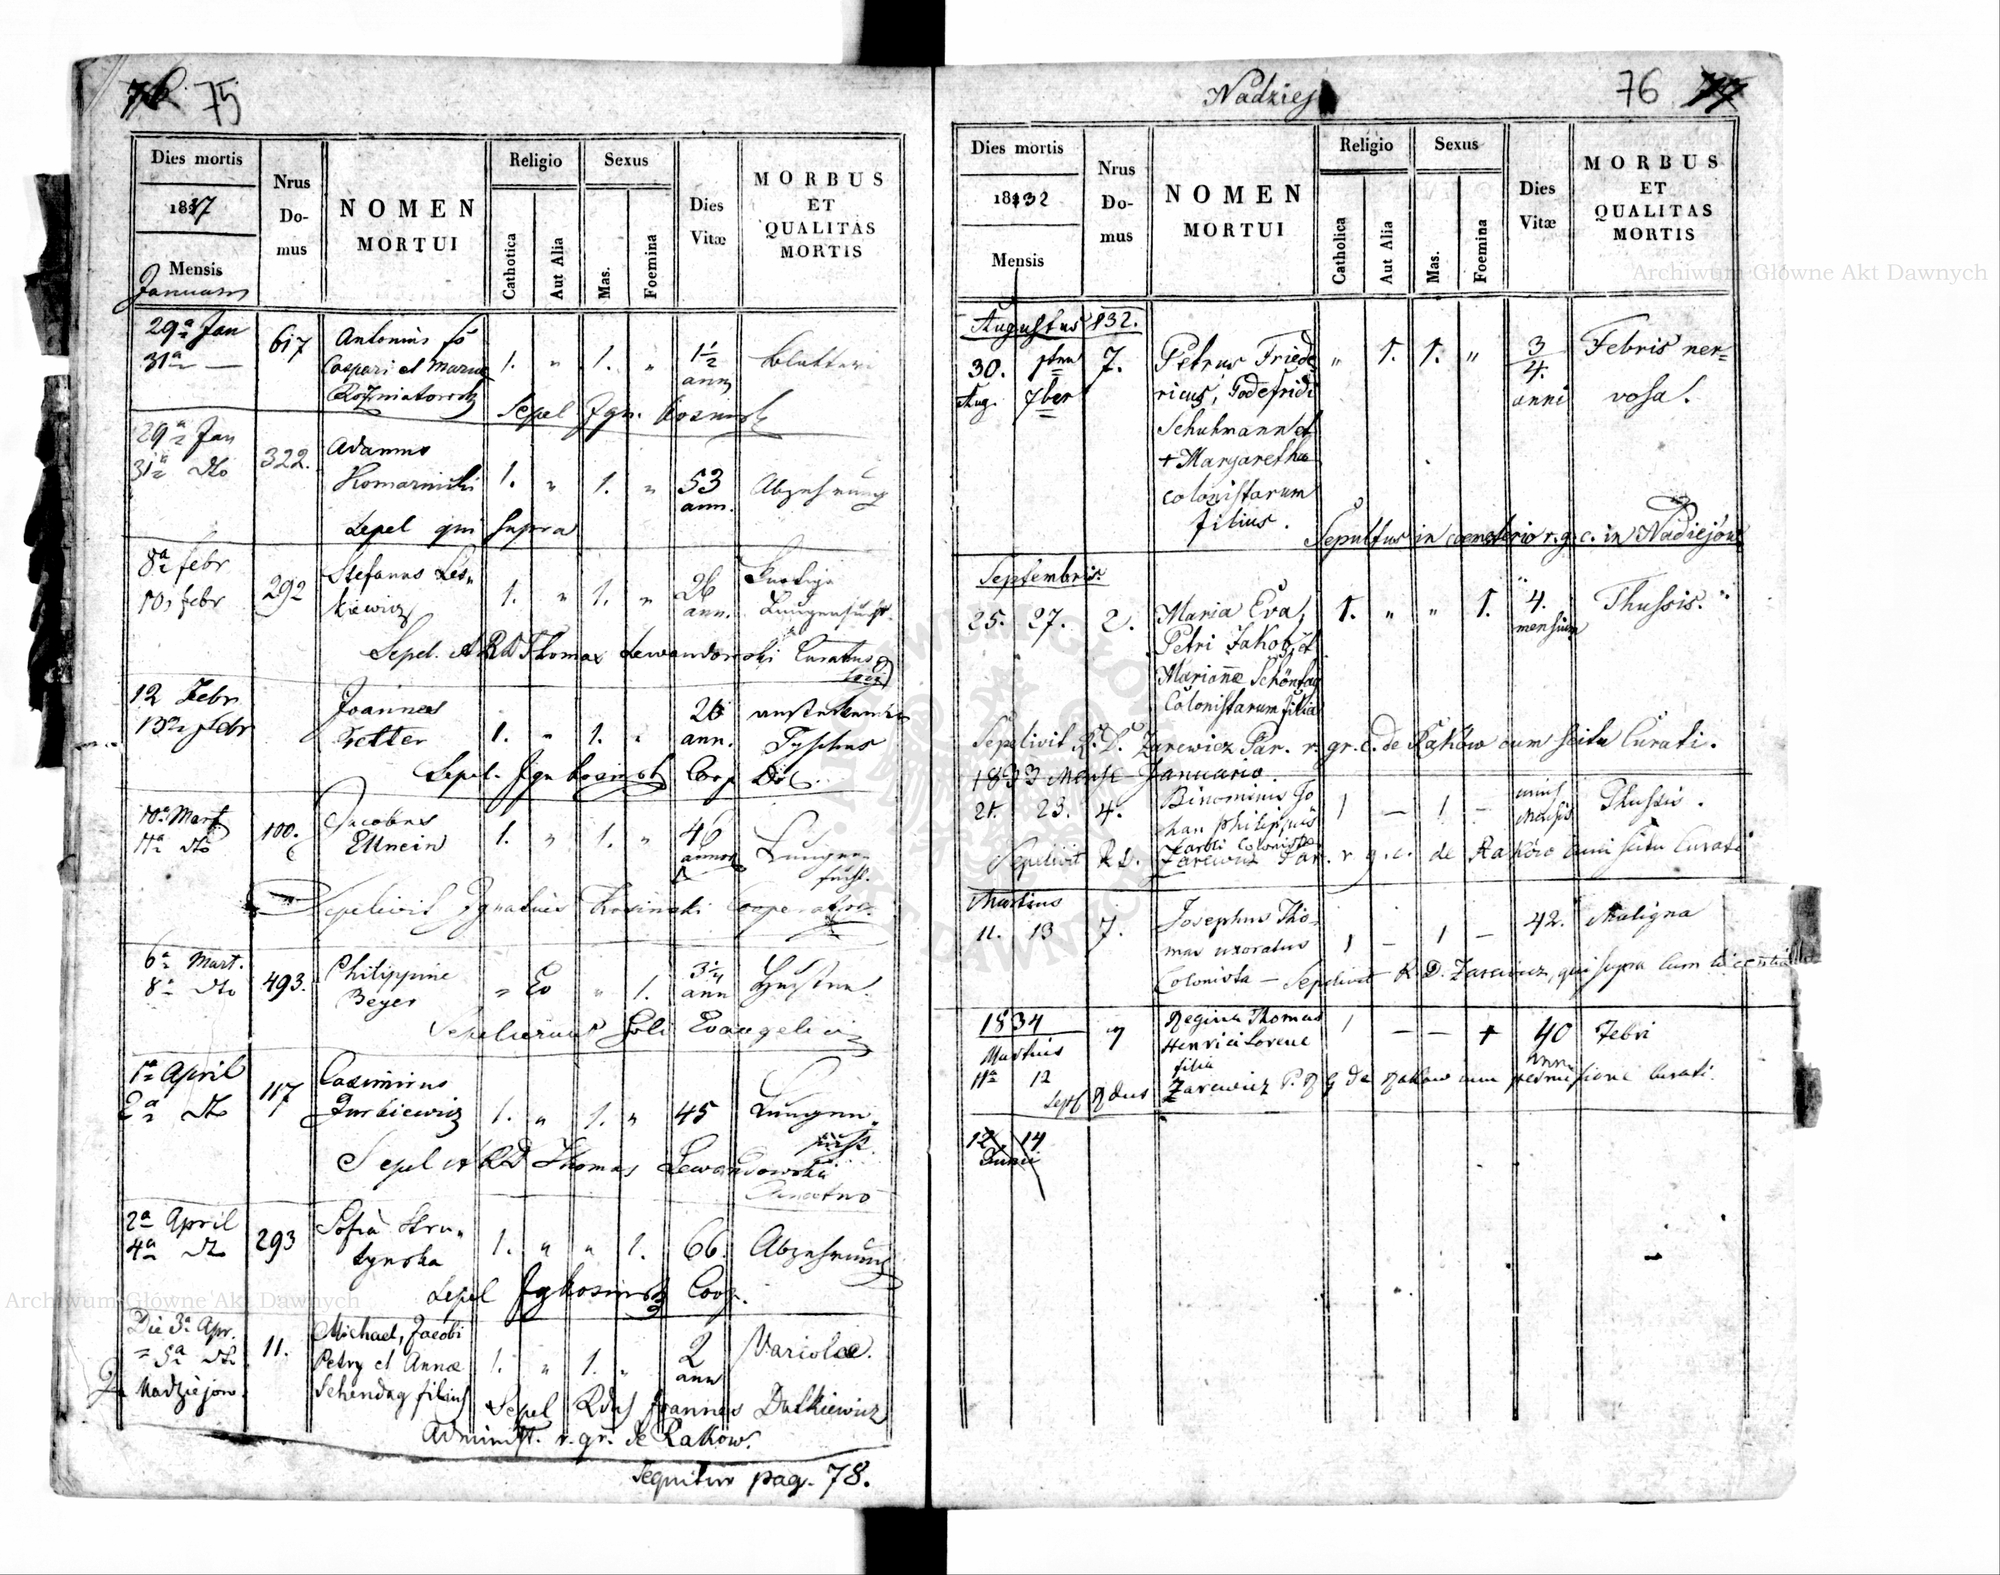 75
Dies mortis
1837
Mensis
Januarii
Nrus
Do-
mus
NOMEN
MORTUI
Religio
Catholica
Aut Alia
Sexus
Mas.
Foemina
Dies
Vitæ
MORBUS
ET
QUALITAS
MORTIS
29ª Jan
31ª —
617
Antonius
Caspari et Mariae
1. „ 1. „
1½
ann
Sepel Ign. Kosinsk
29ª Jan
31ª dto
322.
Adamus
Komarnicki
1. „ 1. „
53
ann.
Abzehrung
Sepel qui supra
8ª febr
10ª febr
292
Stefanus Les„
kiewicz
1. „ 1. „
26
ann.
Lungensucht.
Sepel. A R D Thomas Lewandowski Curatus
loci
12 Febr
13ª Febr
Joannes
1. „ 1. „
ann.
Typhus
Sepel. Ign Kosinsk Coop
10ª Mart
11ª dto
100.
Jacobus
1. „ 1. „
46
annor
Lungen-
sucht.
Sepelivit Ignatius Kosinski Cooperator
6ª Mart.
8ª dto
493.
Philippine
Beyer
„ Ev „ 1.
3¼
ann
Husten.
Sepelierunt soli Evangelici
1ª April
2ª dto
117
Casimirus
Jurkiewicz
1. „ 1. „
45
Lungen„
sucht.
Sepel A R D Thomas Lewandowski
2ª April
4ª dto
293
Sofia Stru„
tynska
1. „ „ 1.
66.
Abzehrung
Sepel Ig Kosinsk Coop.
Die 3ª Apr.
= 5ª dto
Nadziejow
11.
Michael, Jacobi
Petry et Annæ
Schendag filius
1. „ 1. „
2
ann
Variolæ.
Sepel Rdus Joannes Dutkiewicz
Administ. r. gr. de Rakow.
Sequitur pag. 78.
Nadziej
76 77
Dies mortis
1832
Mensis
Nrus
Do-
mus
NOMEN
MORTUI
Religio
Catholica
Aut Alia
Sexus
Mas.
Foemina
Dies
Vitæ
MORBUS
ET
QUALITAS
MORTIS
Augustus 832.
30.
Aug.
7ber
7.
Petrus Friede
ricus, Godefridi
Schuhmann et
+ Margaretha
colonistarum
filius.
„ 1. 1. „
3
4.
anni
Febris ner=
vosa.
Sepultus in coemeterio r. g. c. in Nadiejow
Septembris.
25. 27. 2.
Maria Eva,
Petri Jakob, et
Marianæ Schöntag
Colonistarum filia
1. „ „ 1.
4.
mensium
Thussis.
Sepelivit R. D. Zarewicz Par. r. gr. c. de Raków cum scitu Curati.
1833 Mense Januario.
21. 23. 4.
Binominis Jo
han Philippus
Karoli Colonistæ
1 — 1 —
unius
Mensis
Thussis.
Sepelivit R. D. Zarewicz Par. r. g. c. de Raków cum scitu Curati
Martius
11. 13 7.
Josephus Tho-
mas uxoratus
Colonista —
1 — 1 —
42.
Maligna
Sepelivit R. D. Zarewicz, qui supra cum licentia
1834
Martius
11ª 12
7
Regina Thomas
Henrici Lorene
filia
1 — — +
40
Ann
Febri
Sepel Rdus Zarewicz P. R G de Rakow cum permissione Curati.
12 14
Junii
Archiwum Główne Akt Dawnych
Archiwum Główne Akt Dawnych